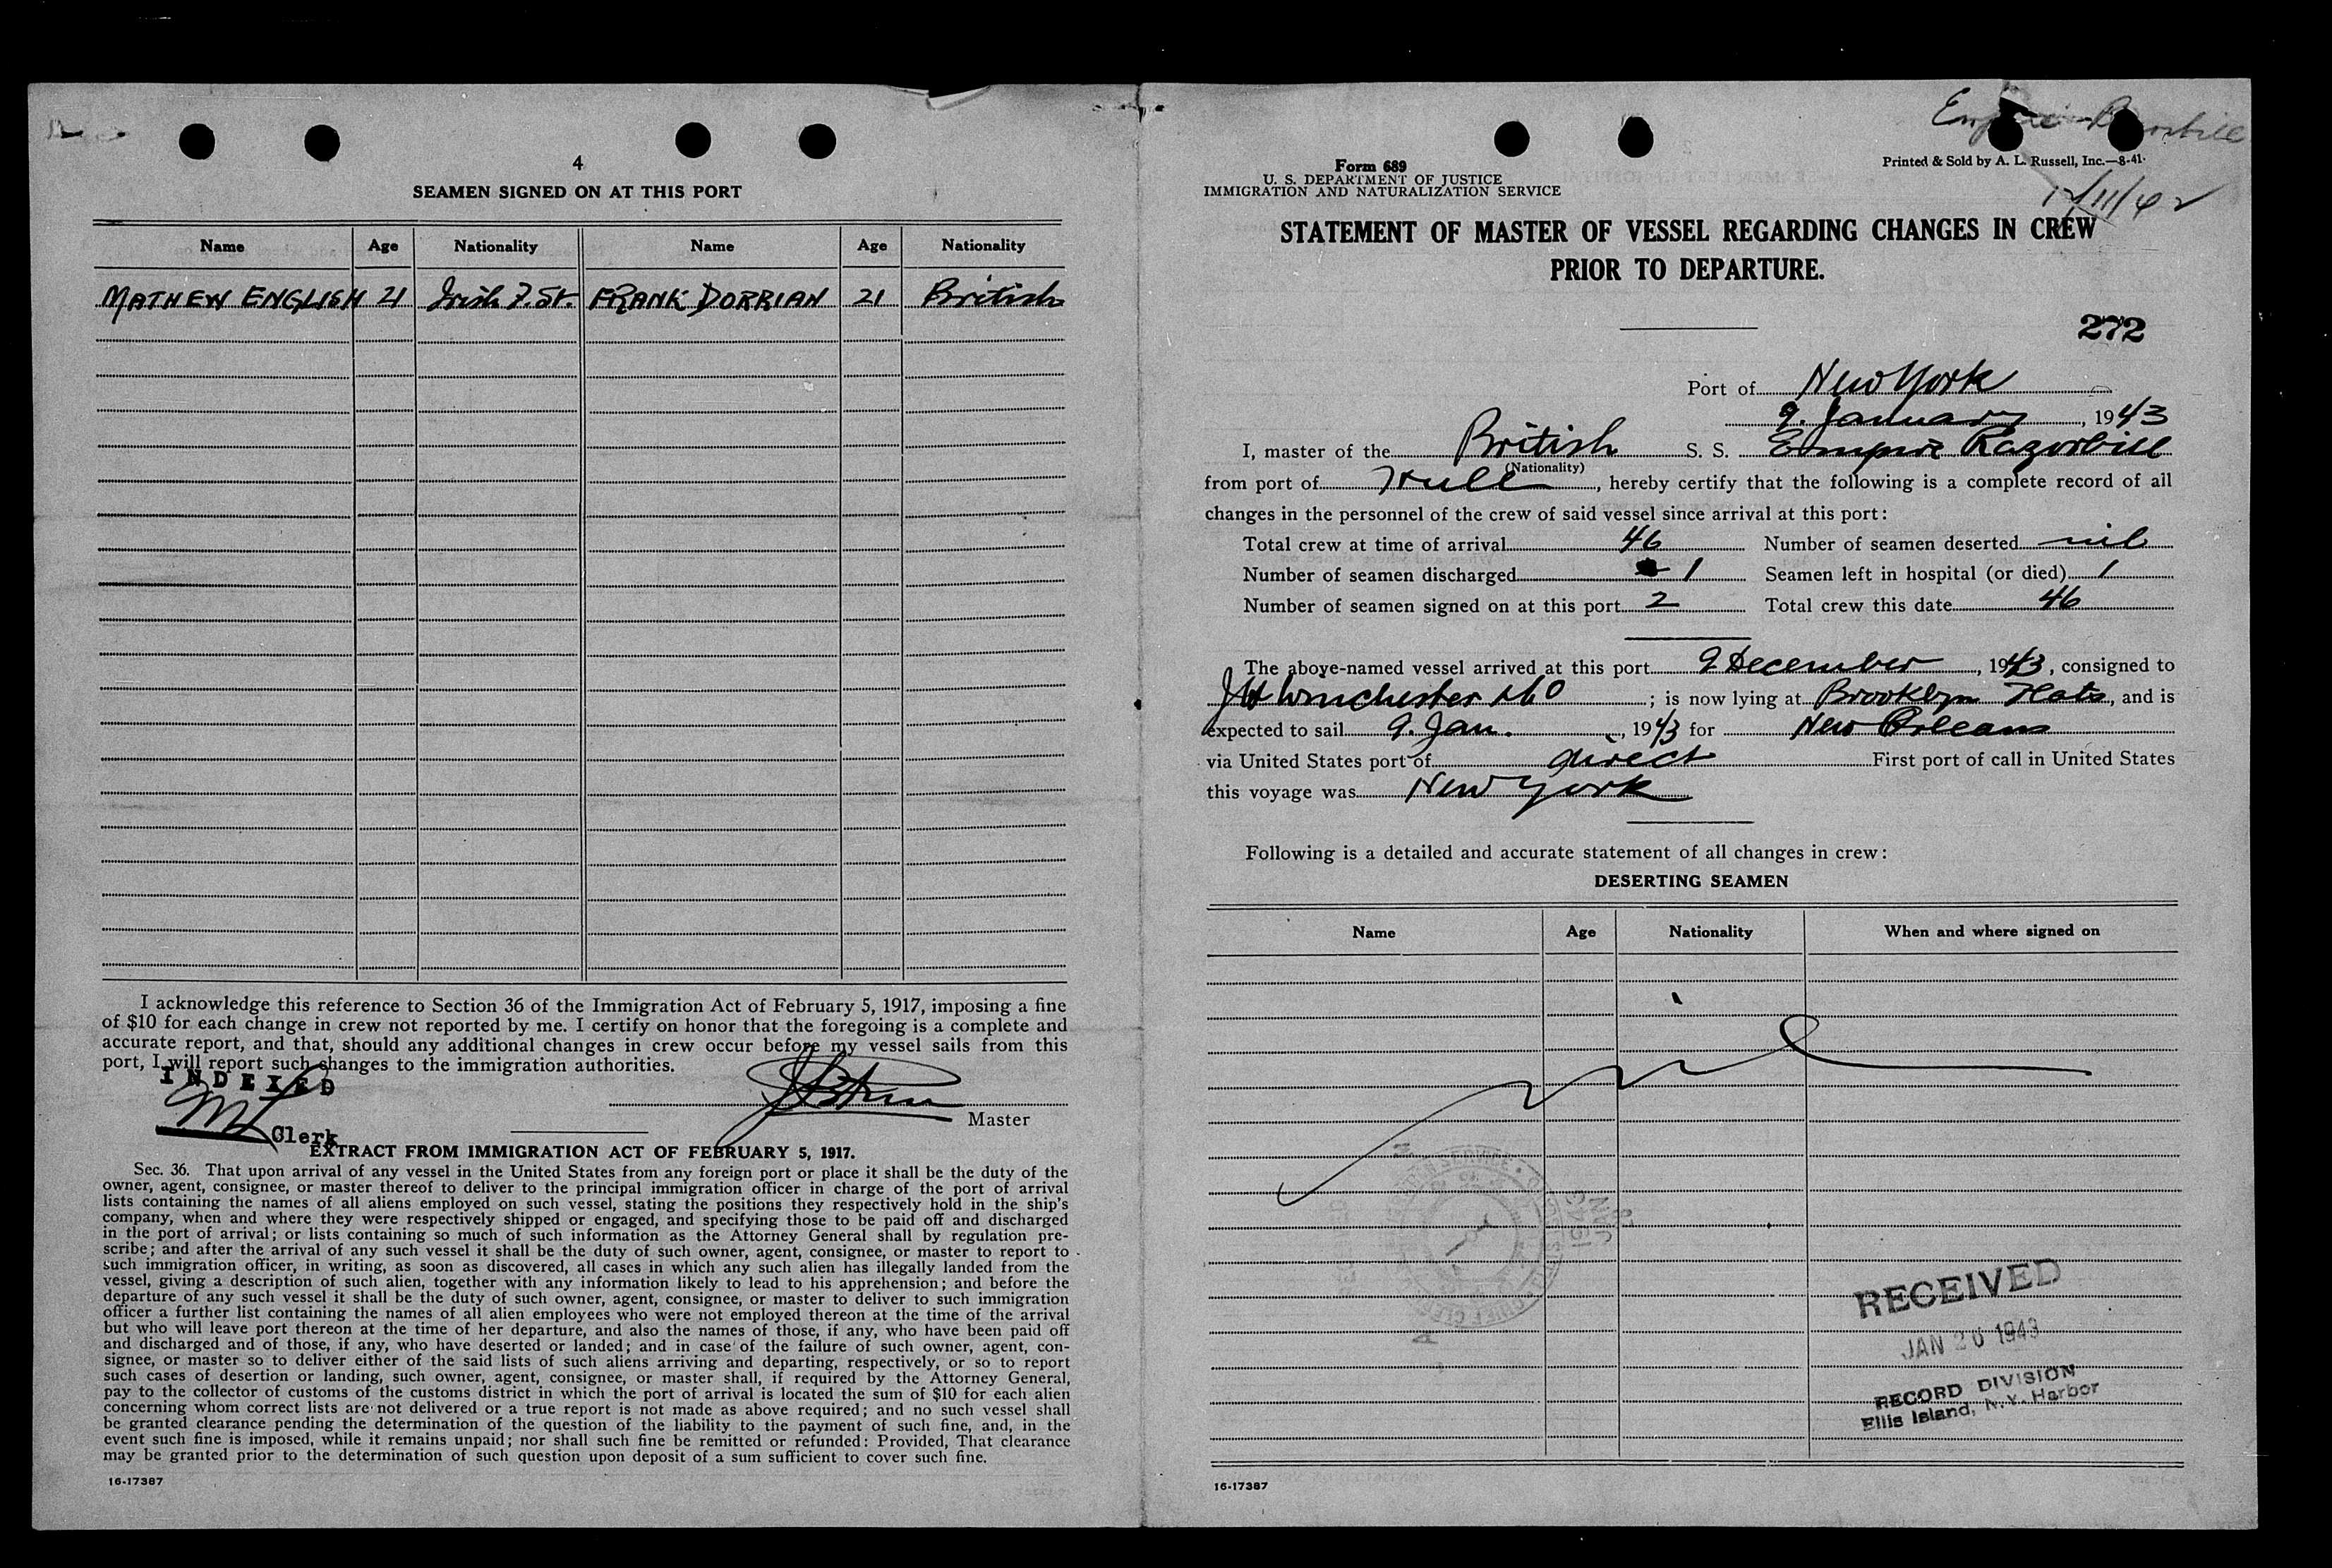 4
SEAMEN SIGNED ON AT THIS PORT
Name Age Nationality Name Age Nationality
MATHEW ENGLISH 21 Irish F. St. FRANK DORRIAN 21 British
I acknowledge this reference to Section 36 of the Immigration Act of February 5, 1917, imposing a fine
of $10 for each change in crew not reported by me. I certify on honor that the foregoing is a complete and
accurate report, and that, should any additional changes in crew occur before my vessel sails from this
port, I will report such changes to the immigration authorities.
INDEXED
Master
Clerk
EXTRACT FROM IMMIGRATION ACT OF FEBRUARY 5, 1917.
Sec. 36. That upon arrival of any vessel in the United States from any foreign port or place it shall be the duty of the
owner, agent, consignee, or master thereof to deliver to the principal immigration officer in charge of the port of arrival
lists containing the names of all aliens employed on such vessel, stating the positions they respectively hold in the ship's
company, when and where they were respectively shipped or engaged, and specifying those to be paid off and discharged
in the port of arrival; or lists containing so much of such information as the Attorney General shall by regulation pre-
scribe; and after the arrival of any such vessel it shall be the duty of such owner, agent, consignee, or master to report to
such immigration officer, in writing, as soon as discovered, all cases in which any such alien has illegally landed from the
vessel, giving a description of such alien, together with any information likely to lead to his apprehension; and before the
departure of any such vessel it shall be the duty of such owner, agent, consignee, or master to deliver to such immigration
officer a further list containing the names of all alien employees who were not employed thereon at the time of the arrival
but who will leave port thereon at the time of her departure, and also the names of those, if any, who have been paid off
and discharged and of those, if any, who have deserted or landed; and in case of the failure of such owner, agent, con-
signee, or master so to deliver either of the said lists of such aliens arriving and departing, respectively, or so to report
such cases of desertion or landing, such owner, agent, consignee, or master shall, if required by the Attorney General,
pay to the collector of customs of the customs district in which the port of arrival is located the sum of $10 for each alien
concerning whom correct lists are not delivered or a true report is not made as above required; and no such vessel shall
be granted clearance pending the determination of the question of the liability to the payment of such fine, and, in the
event such fine is imposed, while it remains unpaid; nor shall such fine be remitted or refunded: Provided, That clearance
may be granted prior to the determination of such question upon deposit of a sum sufficient to cover such fine.
16-17387
Empire Razorbill
Form 689
U. S. DEPARTMENT OF JUSTICE
IMMIGRATION AND NATURALIZATION SERVICE
Printed & Sold by A. L. Russell, Inc.—8-41
12/11/42
STATEMENT OF MASTER OF VESSEL REGARDING CHANGES IN CREW
PRIOR TO DEPARTURE.
272
Port of New York
9. January, 1943
I, master of the British S. S. Empire Razorbill
(Nationality)
from port of Hull, hereby certify that the following is a complete record of all
changes in the personnel of the crew of said vessel since arrival at this port:
Total crew at time of arrival 46 Number of seamen deserted nil
Number of seamen discharged 1 Seamen left in hospital (or died) 1
Number of seamen signed on at this port 2 Total crew this date 46
The above-named vessel arrived at this port 9 December, 1943, consigned to
J H Winchester & Co; is now lying at Brooklyn Flats, and is
expected to sail 9. Jan., 1943 for New Orleans
via United States port of direct First port of call in United States
this voyage was New York
Following is a detailed and accurate statement of all changes in crew:
DESERTING SEAMEN
Name Age Nationality When and where signed on
nil
RECEIVED
JAN 20 1943
RECORD DIVISION
Ellis Island, N.Y. Harbor
16-17387